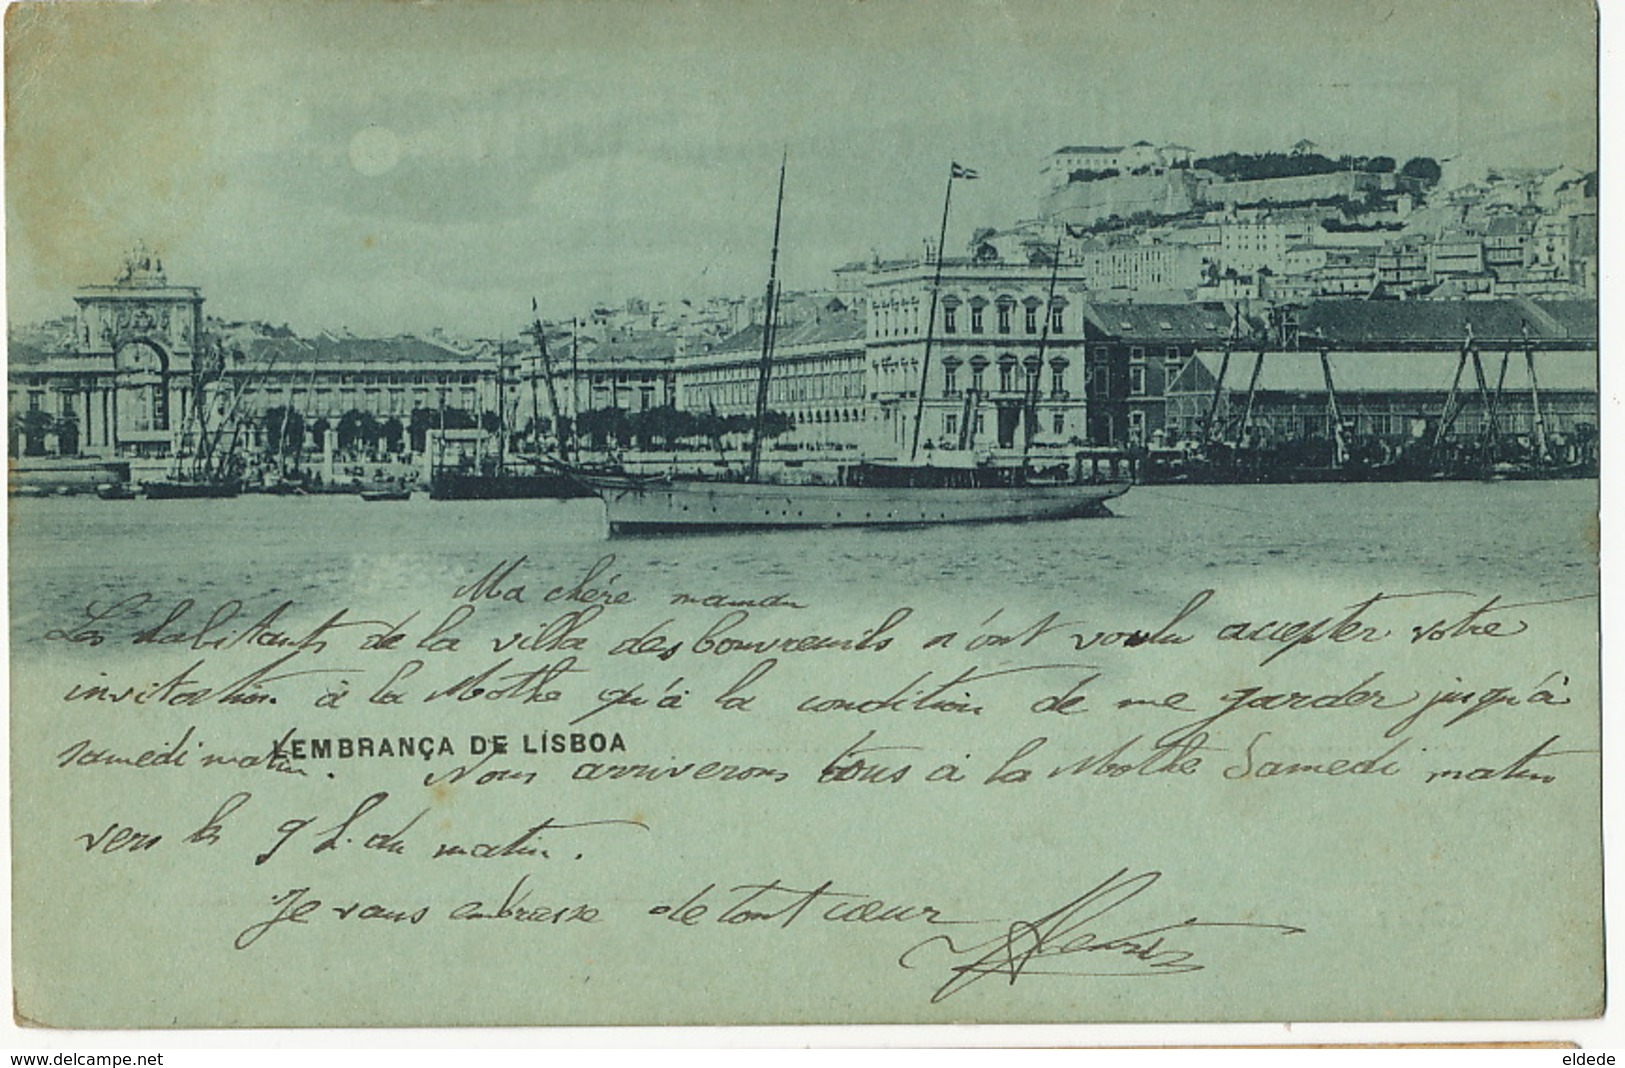 Ma chère maman
Les habitants de la villa des bouvreuils n'ont voulu accepter votre
invitation à la Mothe qu'à la condition de me garder jusqu'à
samedi matin. Nous arriverons tous à la Mothe Samedi matin
LEMBRANÇA DE LISBOA
vers les 9 h. du matin.
Je vous embrasse de tout cœur
Henri
www.delcampe.net
eldede